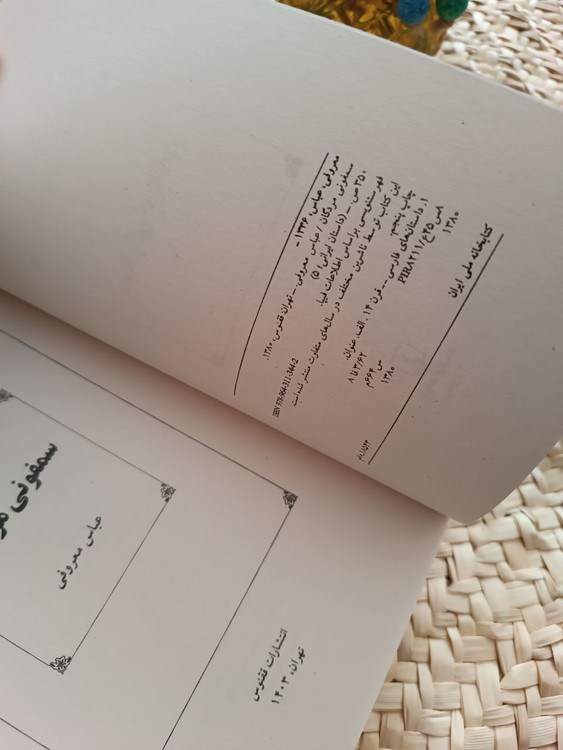 معروفی، عباس، ۱۳۳۶ -
سمفونی مردگان / عباس معروفی. - تهران: ققنوس، ۱۳۸۰.
۳۵۰ ص. - (داستان ایرانی؛ ۵)
ISBN 978-964-311-344-2
فهرستنویسی براساس اطلاعات فیپا.
این کتاب توسط ناشرین مختلف در سال‌های متفاوت منتشر شده است.
چاپ پنجم.
۱. داستان‌های فارسی -- قرن ۱۴. الف. عنوان.
PIR۸۲۱۱/ع۴۵س۸ ۸فا۳/۶۲
۱۳۸۰ س۶۶۴م
۱۳۸۰
کتابخانه ملی ایران
سمفونی
عباس معروفی
انتشارات ققنوس
تهران، ۱۴۰۳